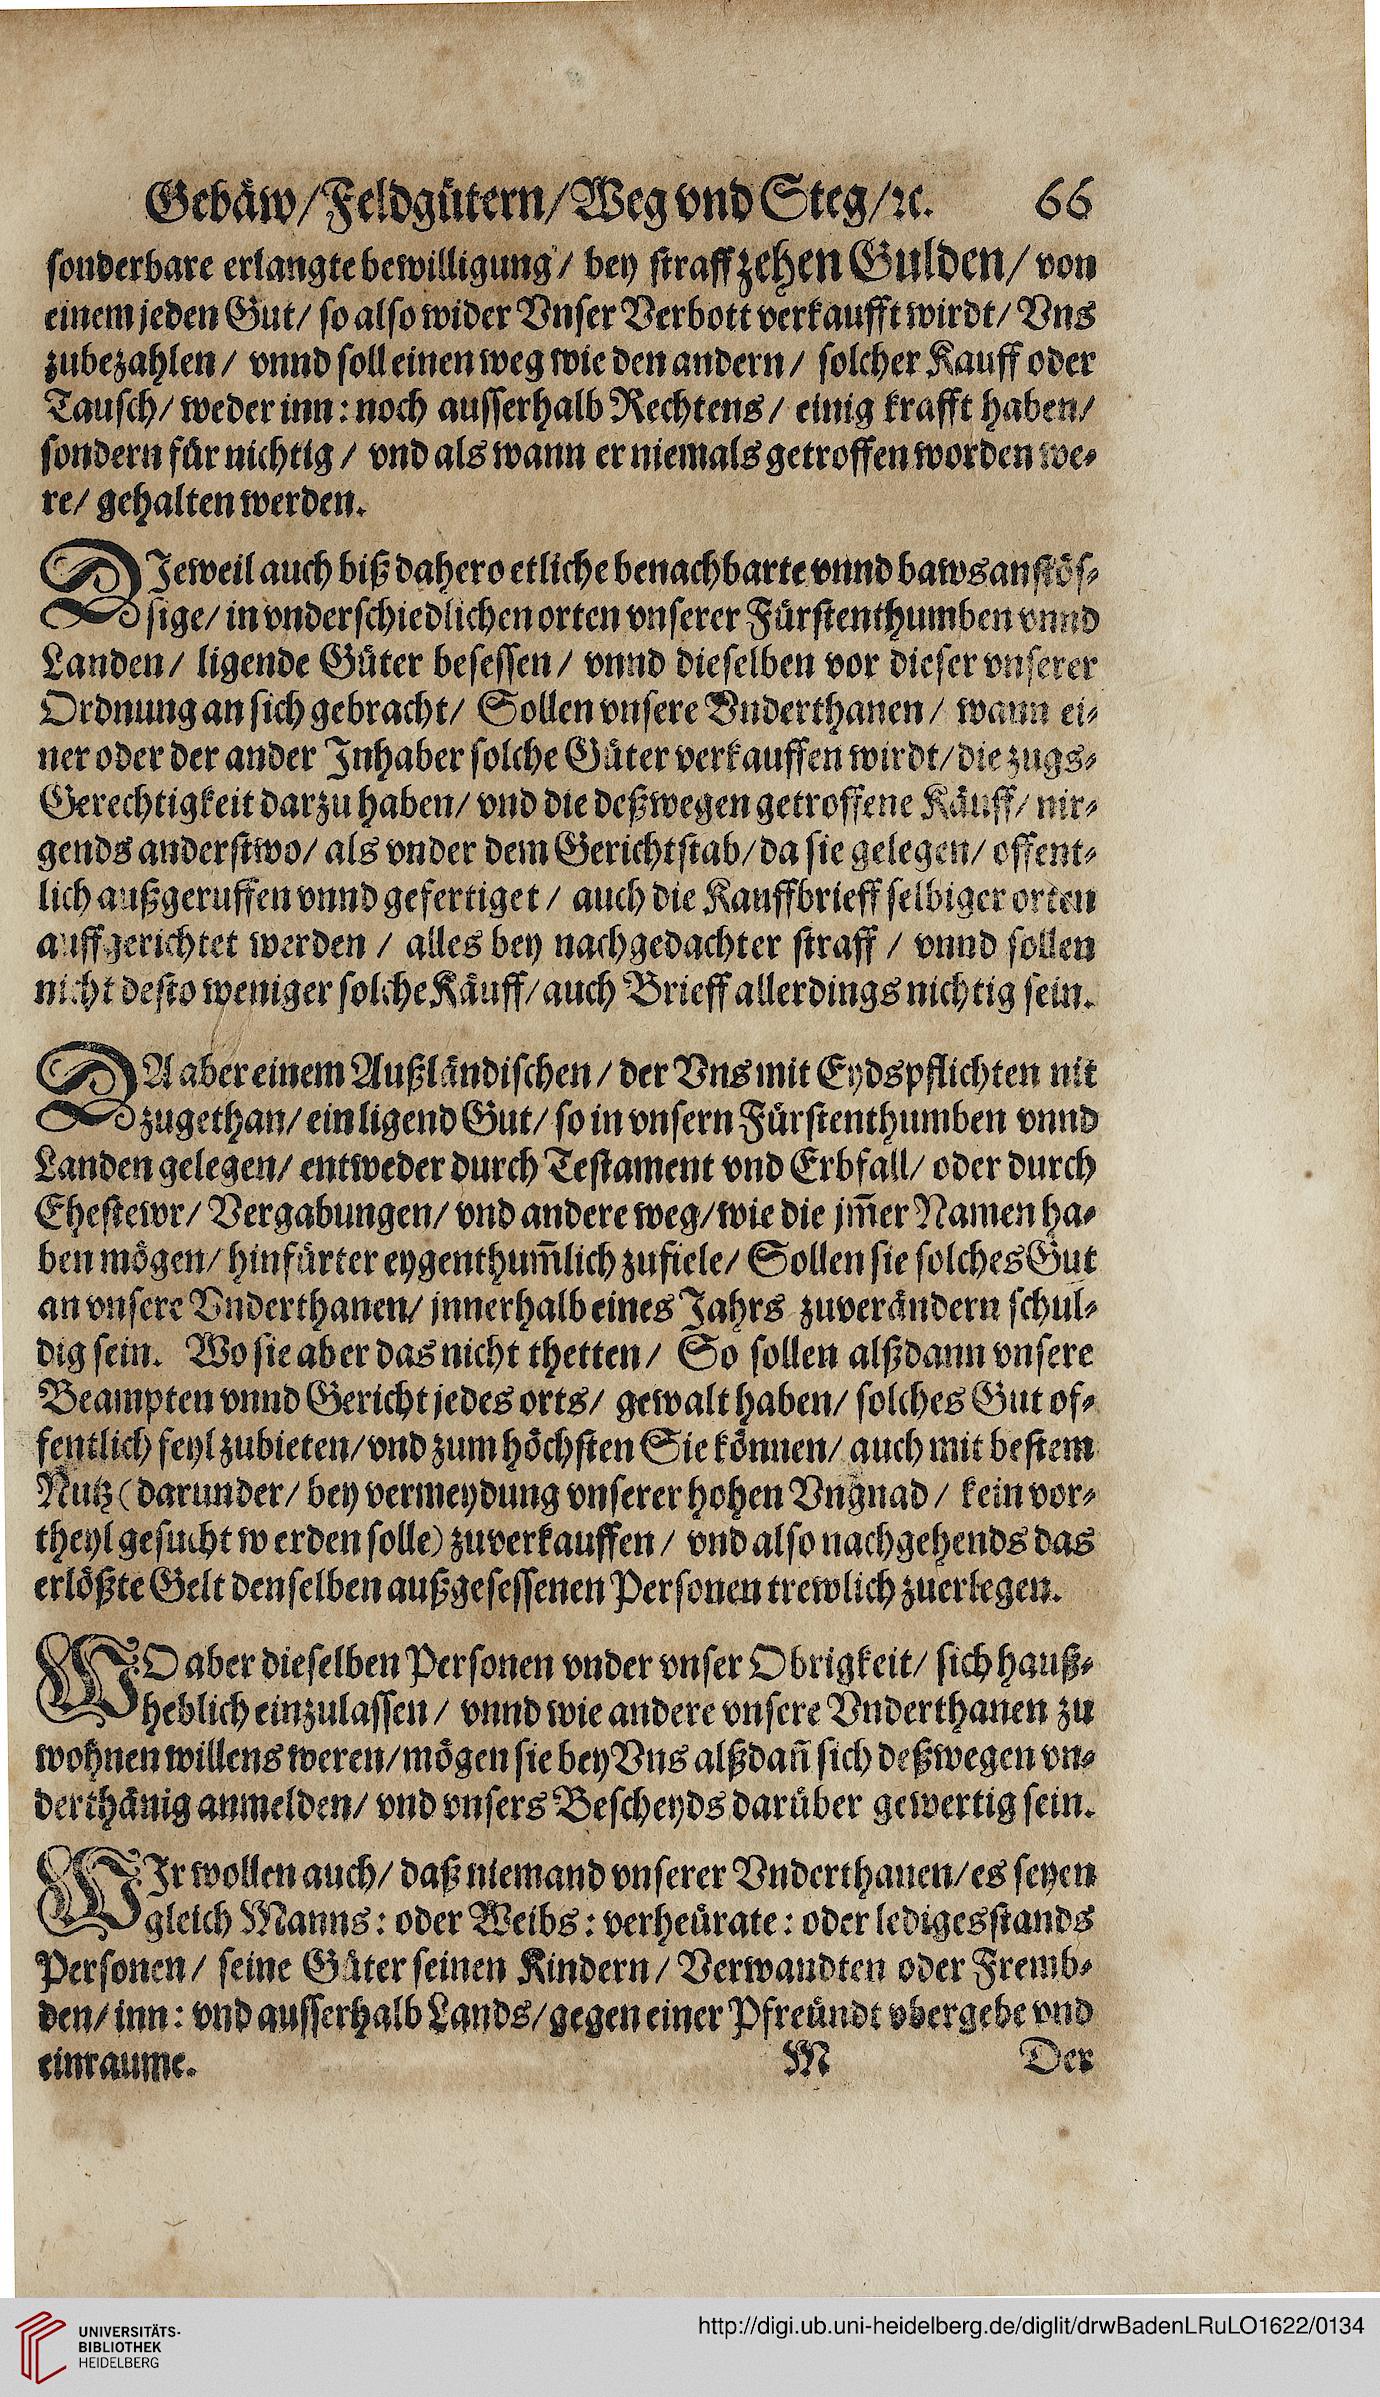 Gebäw/Feldgütern/Weg vnd Steg/ꝛc. 66
sonderbare erlangte bewilligung/ bey straff zehen Gulden/ von
einem jeden Gut/ so also wider Vnser Verbott verkaufft wirdt/ Vns
zubezahlen/ vnnd soll einen weg wie den andern/ solcher Kauff oder
Tausch/ weder inn: noch ausserhalb Rechtens/ einig krafft haben/
sondern für nichtig/ vnd als wann er niemals getroffen worden we-
re/ gehalten werden.
DIeweil auch biß dahero etliche benachbarte vnnd bawsanstös-
sige/ in vnderschiedlichen orten vnserer Fürstenthumben vnnd
Landen/ ligende Güter besessen/ vnnd dieselben vor dieser vnserer
Ordnung an sich gebracht/ Sollen vnsere Vnderthanen/ wann ei-
ner oder der ander Inhaber solche Güter verkauffen wirdt/ die zugs-
Gerechtigkeit darzu haben/ vnd die deßwegen getroffene Käuff/ nir-
gends anderstwo/ als vnder dem Gerichtstab/ da sie gelegen/ offent-
lich außgeruffen vnnd gefertiget/ auch die Kauffbrieff selbiger orten
auffgerichtet werden/ alles bey nachgedachter straff/ vnnd sollen
nicht desto weniger solche Käuff/ auch Brieff allerdings nichtig sein.
DA aber einem Außländischen/ der Vns mit Eydspflichten nit
zugethan/ ein ligend Gut/ so in vnsern Fürstenthumben vnnd
Landen gelegen/ entweder durch Testament vnd Erbfall/ oder durch
Ehestewr/ Vergabungen/ vnd andere weg/ wie die jm̄er Namen ha-
ben mögen/ hinfürter eygenthum̄lich zufiele/ Sollen sie solches Gut
an vnsere Vnderthanen/ jnnerhalb eines Jahrs zuverändern schul-
dig sein. Wo sie aber das nicht thetten/ So sollen alßdann vnsere
Beampten vnnd Gericht jedes orts/ gewalt haben/ solches Gut of-
fentlich feyl zubieten/ vnd zum höchsten Sie können/ auch mit bestem
Nutz (darunder/ bey vermeydung vnserer hohen Vngnad/ kein vor-
theyl gesucht werden solle) zuverkauffen/ vnd also nachgehends das
erlößte Gelt denselben außgesessenen Personen trewlich zuerlegen.
WO aber dieselben Personen vnder vnser Obrigkeit/ sich hauß-
heblich einzulassen/ vnnd wie andere vnsere Vnderthanen zu
wohnen willens weren/ mögen sie bey Vns alßdan̄ sich deßwegen vn-
derthänig anmelden/ vnd vnsers Bescheyds darüber gewertig sein.
WIr wollen auch/ daß niemand vnserer Vnderthanen/ es seyen
gleich Manns: oder Weibs: verheürate: oder lediges stands
Personen/ seine Güter seinen Kindern/ Verwandten oder Fremb-
den/ inn: vnd ausserhalb Lands/ gegen einer Pfreündt vbergebe vnd
einraume. M Der
UNIVERSITÄTS-
BIBLIOTHEK
HEIDELBERG
http://digi.ub.uni-heidelberg.de/diglit/drwBadenLRuLO1622/0134